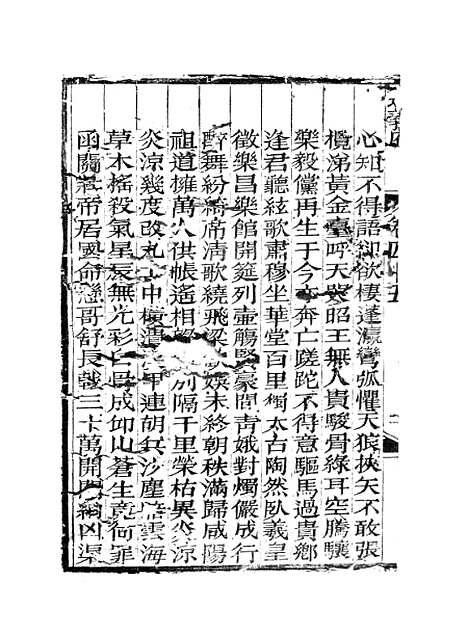 心知不得語卻欲棲蓬瀛彎弧懼天狼挾矢不敢張
攬涕黃金臺呼天哭昭王無人貴駿骨綠耳空騰驤
樂毅儻再生于今亦奔亡蹉跎不得意驅馬過貴鄉
逢君聽絃歌肅穆坐華堂百里獨太古陶然臥羲皇
徵樂昌樂館開筵列壺觴賢豪間青娥對燭儼成行
醉舞紛綺席清歌繞飛梁歡娛未終朝秩滿歸咸陽
祖道擁萬人供帳遙相望別隔千里榮枯異炎涼
炎涼幾度改九土中橫潰甲連胡兵沙塵雲海
草木搖殺氣星辰無光彩白骨成丘山蒼生竟何罪
函關壯帝居國命懸哥舒長戟三十萬開門納凶渠